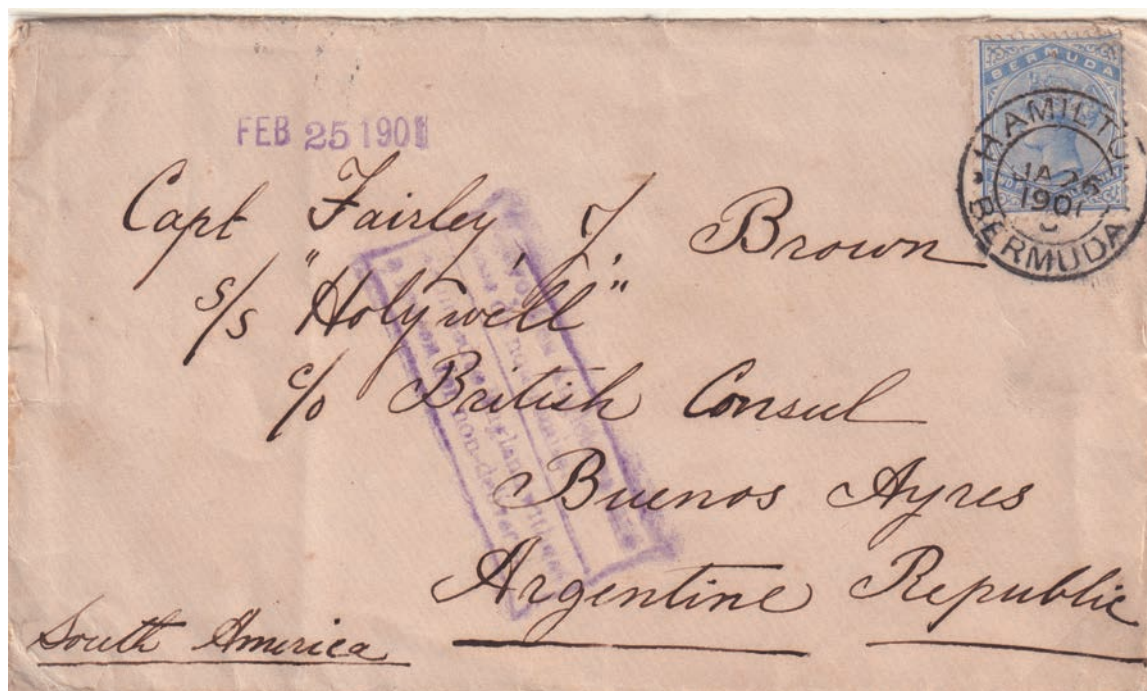 BERMUDA
HAMILTON
JA 26
1901
BERMUDA
FEB 25 1901
Capt Fairley J. Brown
s/s "Holywell"
c/o British Consul
Buenos Ayres
Argentine Republic
South America